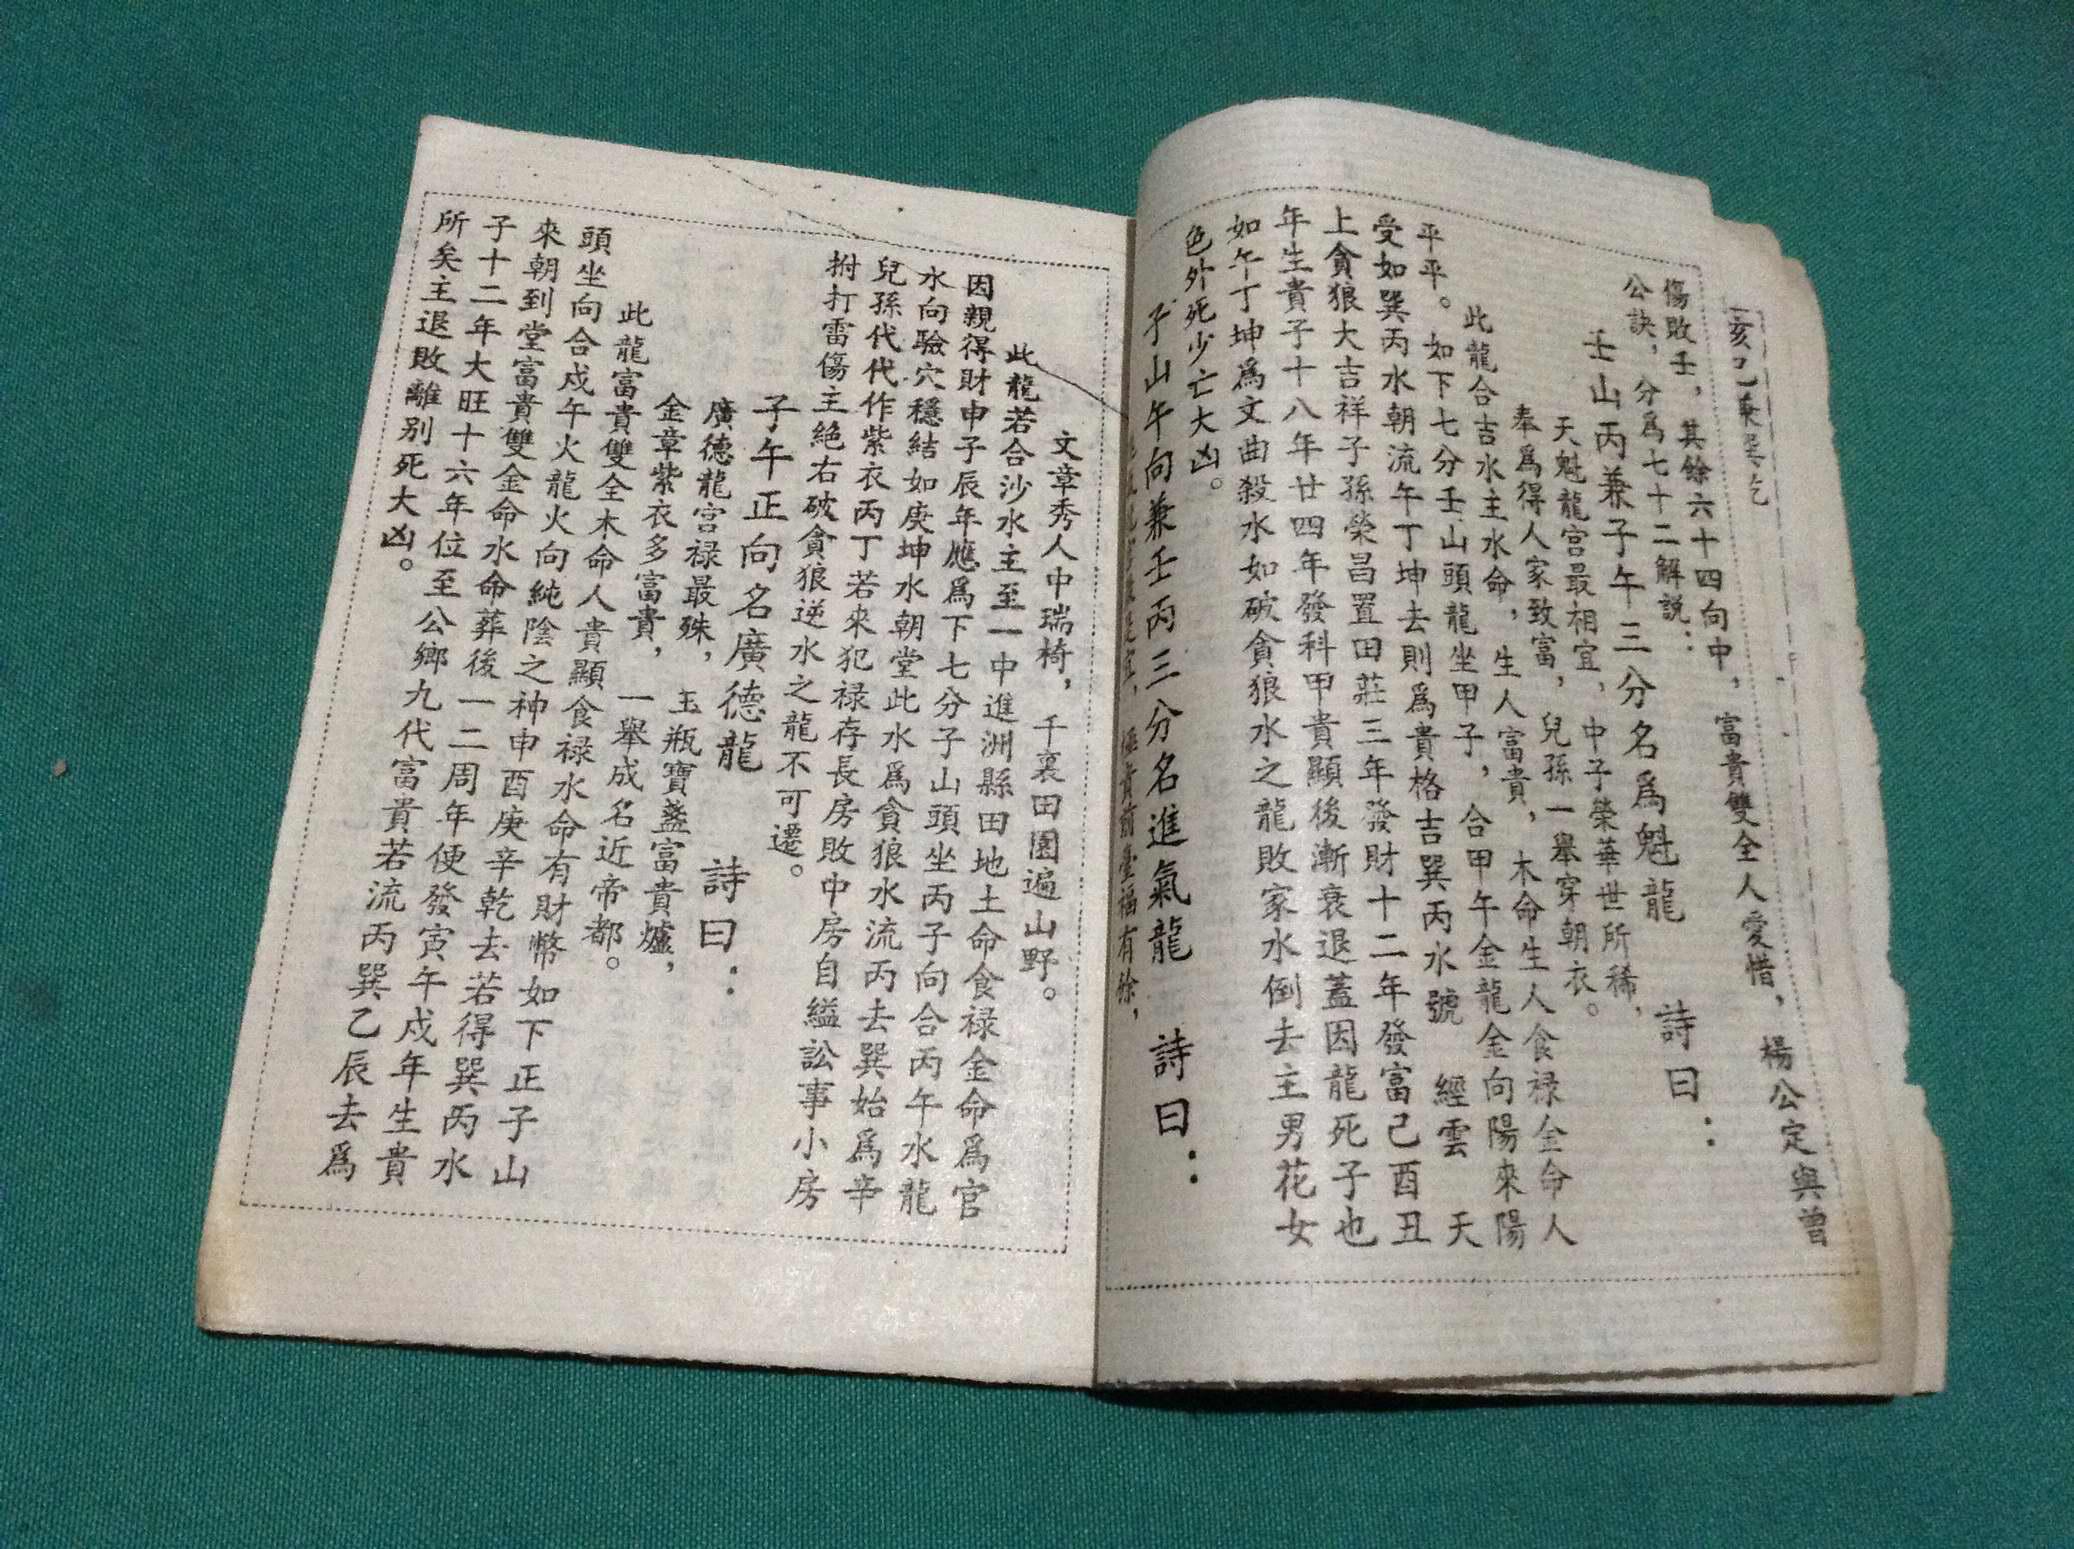 傷敗壬，其餘六十四向中，富貴雙全人愛惜，楊公定與曾
公訣，分爲七十二解説：
壬山丙兼子午三分名爲魁龍　詩曰：
天魁龍宫最相宜，中子榮華世所稀，
奉爲得人家致富，兒孫一舉穿朝衣。
此龍合吉水主水命，生人富貴，木命生人食禄金命人
平平。如下七分壬山頭龍坐甲子，合甲午金龍金向陽來陽
受如巽丙水朝流午丁坤去則爲貴格吉巽丙水號　經雲　天
上貪狼大吉祥子孫榮昌置田莊三年發財十二年發富己酉丑
年生貴子十八年廿四年發科甲貴顯後漸衰退蓋因龍死子也
如午丁坤爲文曲殺水如破貪狼水之龍敗家水倒去主男花女
色外死少亡大凶。
子山午向兼壬丙三分名進氣龍　詩曰：
文章秀人中瑞椅，千裏田園遍山野。
此龍若合沙水主至一中進洲縣田地土命食禄金命爲官
因親得財申子辰年應爲下七分子山頭坐丙子向合丙午水龍
水向驗穴穩結如庚坤水朝堂此水爲貪狼水流丙去巽始爲辛
兒孫代代作紫衣丙丁若來犯禄存長房敗中房自縊訟事小房
拊打雷傷主絶右破貪狼逆水之龍不可遷。
子午正向名廣德龍　詩曰：
廣德龍宫禄最殊，玉瓶寶盞富貴爐，
金章紫衣多富貴，一舉成名近帝都。
此龍富貴雙全木命人貴顯食禄水命有財幣如下正子山
頭坐向合戍午火龍火向純陰之神申酉庚辛乾去若得巽丙水
來朝到堂富貴雙金命水命葬後一二周年便發寅午戍年生貴
子十二年大旺十六年位至公鄉九代富貴若流丙巽乙辰去爲
所矣主退敗離别死大凶。